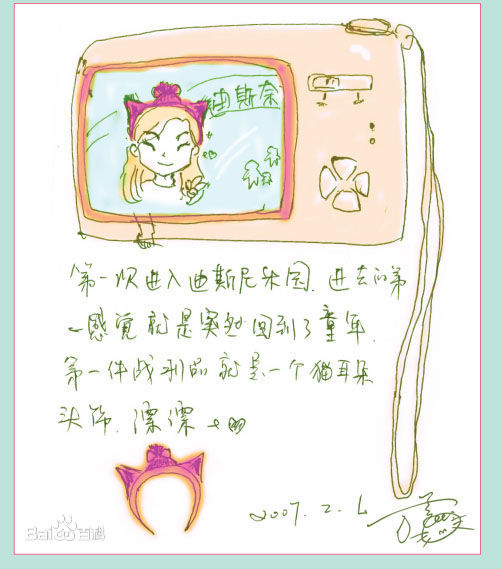 迪斯奈
第一次进入迪斯尼乐园. 进去的第
一感觉就是突然回到了童年.
第一件战利品就是一个猫耳朵
头饰. 漂漂
2007. 2.
Bai百科